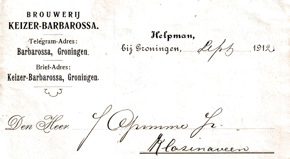 BROUWERIJ
KEIZER-BARBAROSSA.
Telegram-Adres:
Barbarossa, Groningen.
Brief-Adres:
Keizer-Barbarossa, Groningen.
Helpman,
bij Groningen, Sept 1912
Den Heer J Opmme Jr.
Klazinaveen